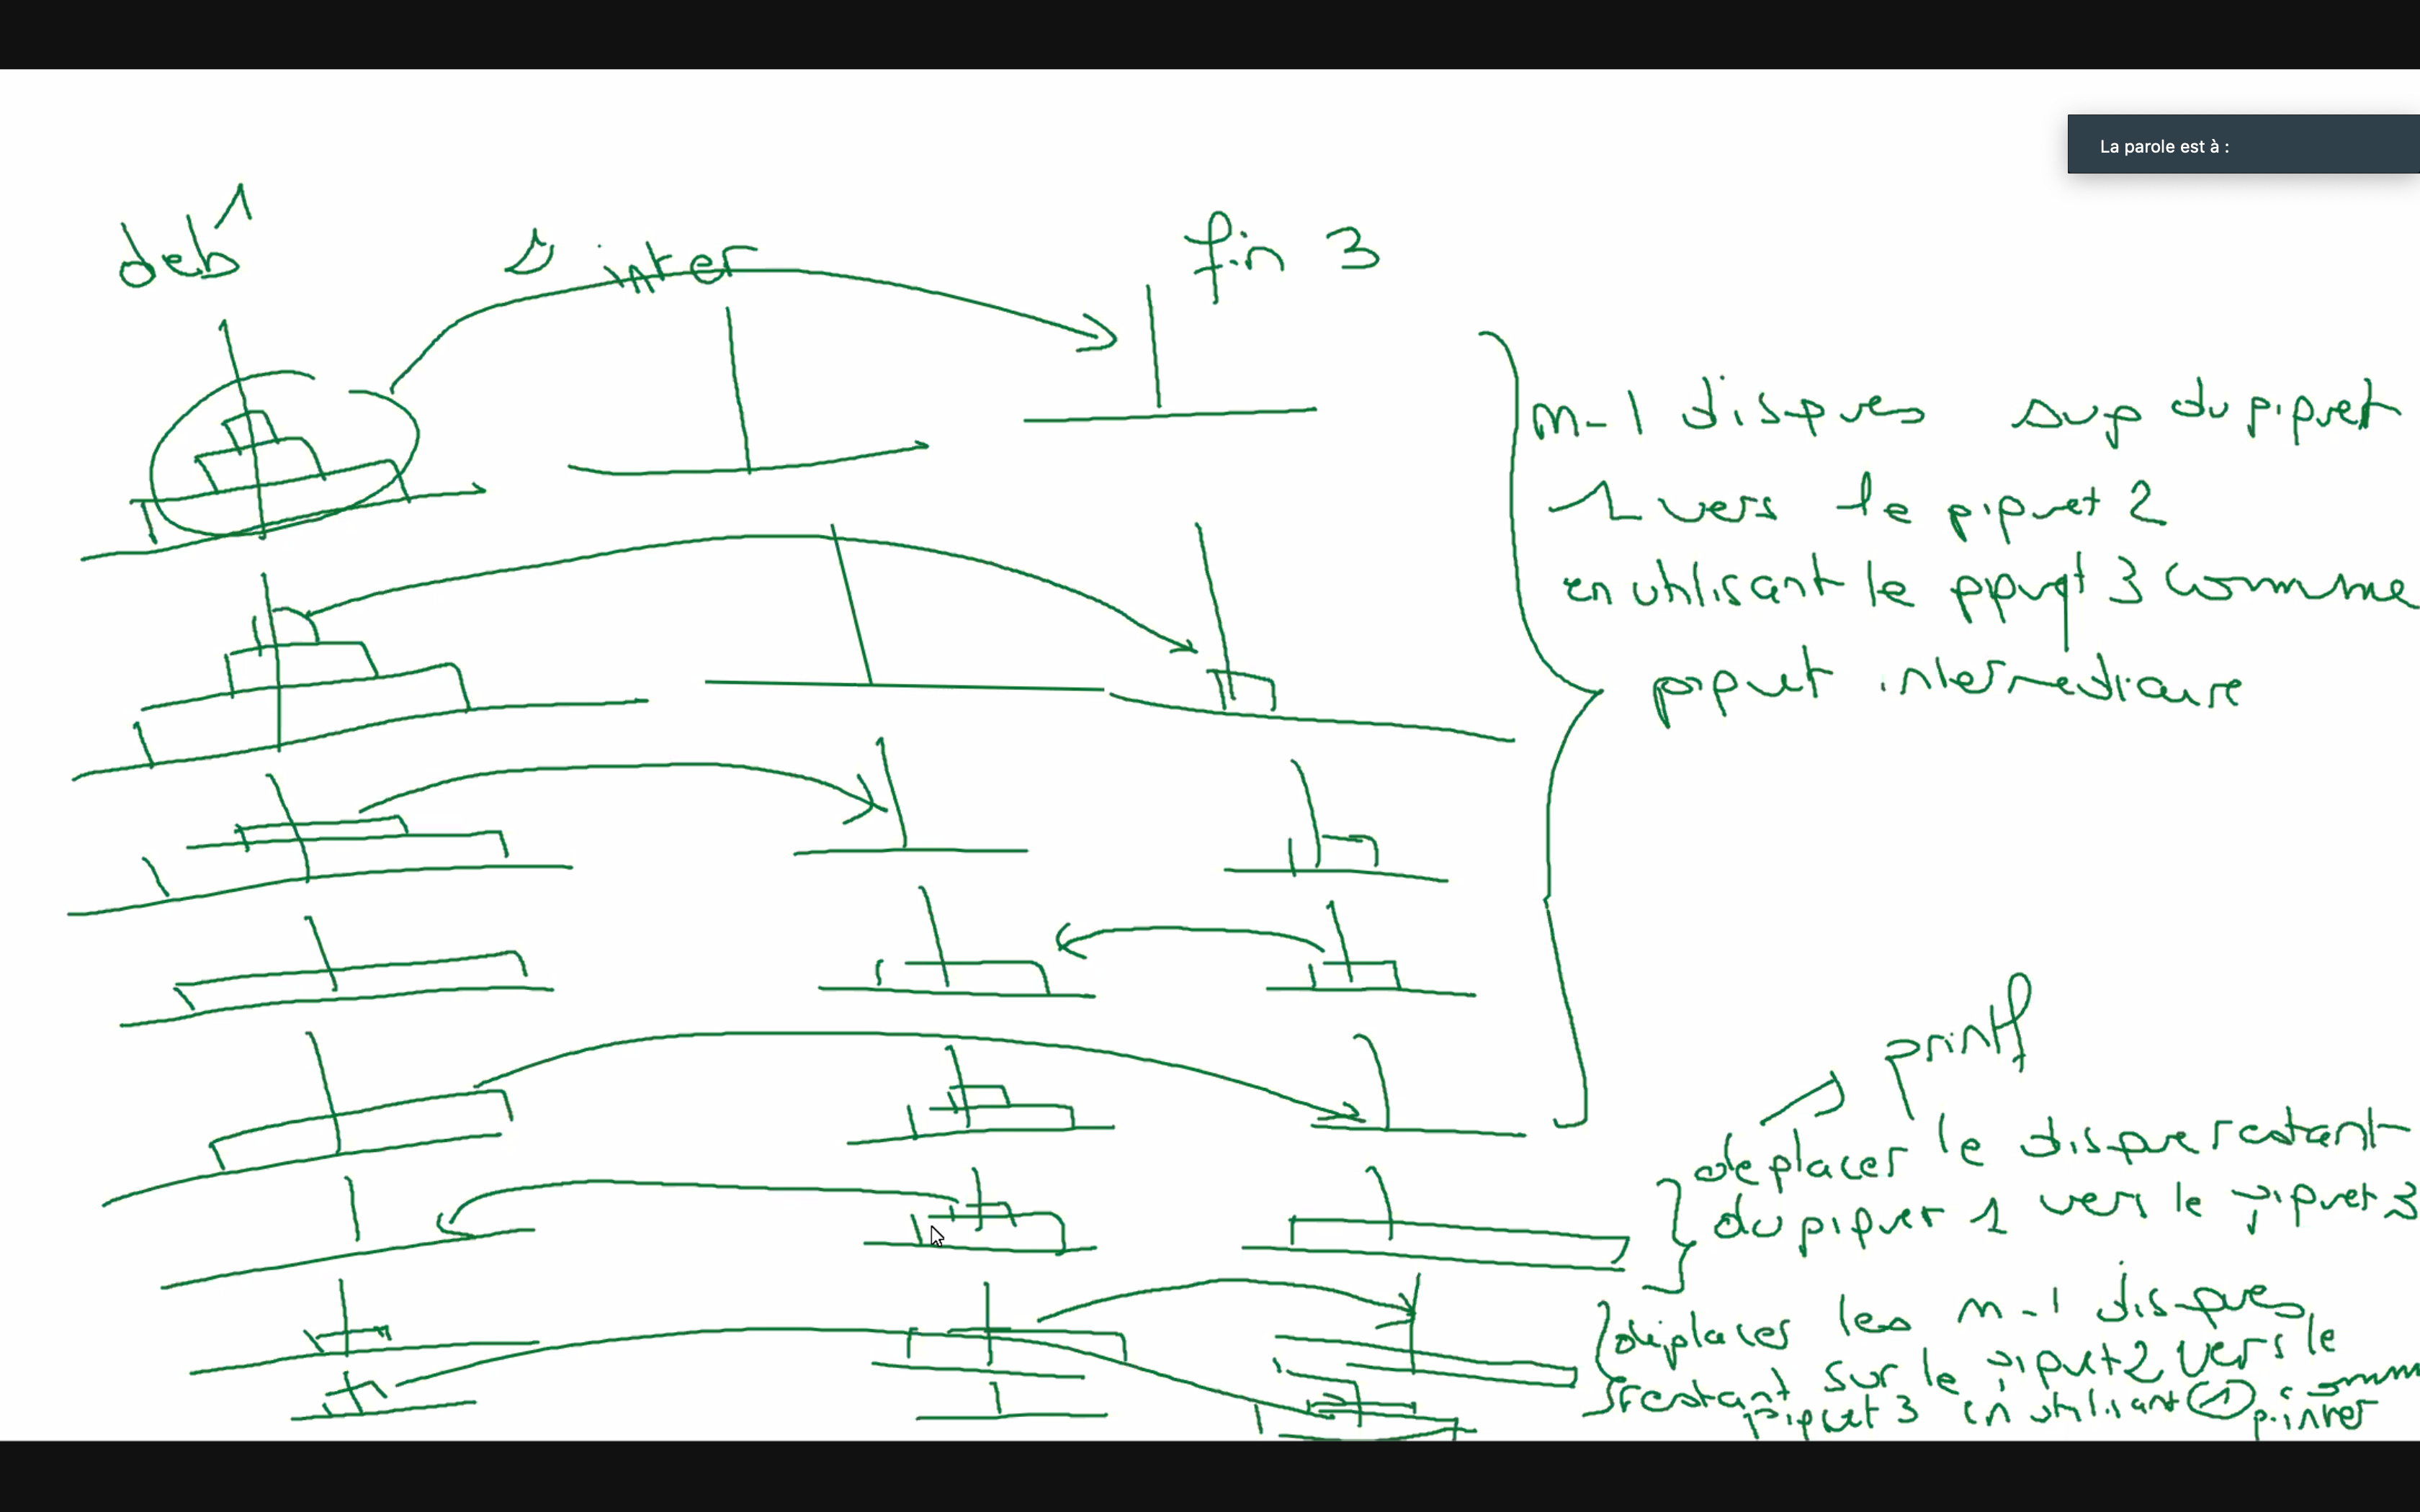 La parole est à :
deb 1
2 inter
fin 3
m-1 disques sup du piquet
1 vers le piquet 2
en utilisant le piquet 3 comme
piquet intermediaire
printf
deplacer le disque restant
du piquet 1 vers le piquet 3
deplacer les m-1 disques
restant sur le piquet 2 vers le
piquet 3 en utilisant 1 comm
p.inter